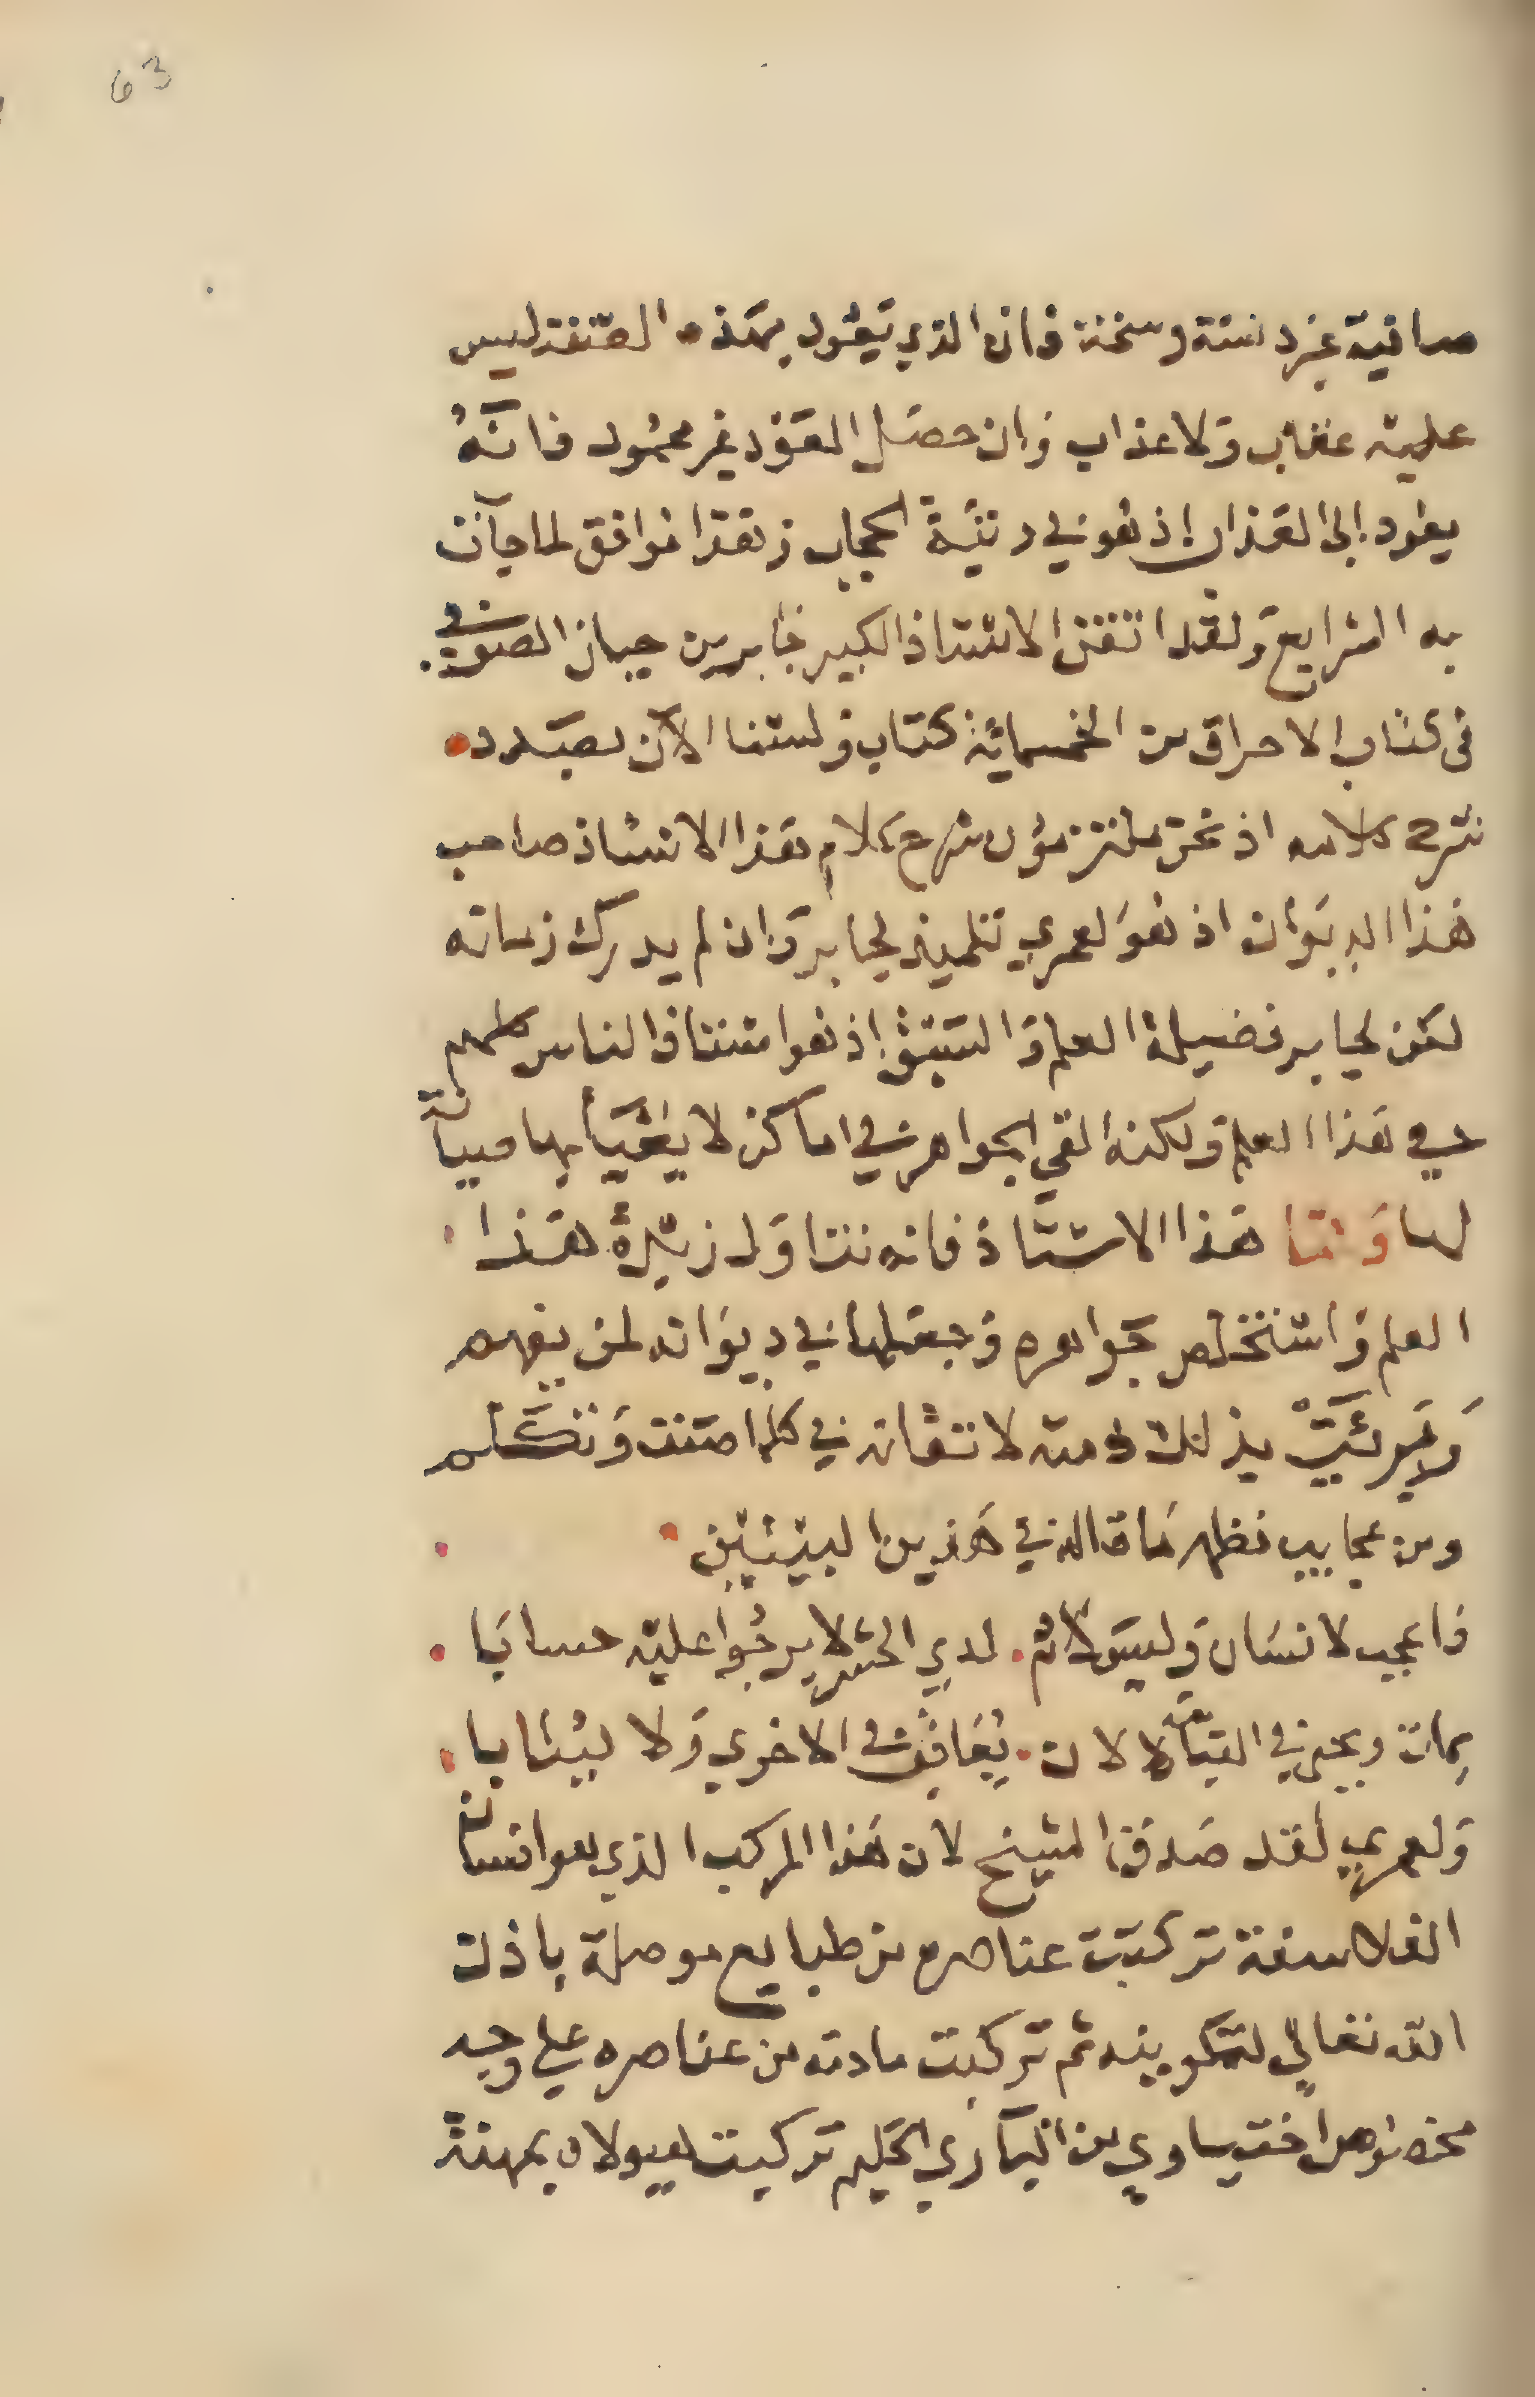 63
صافية غير دنسة وسخنة فان الذي يَعُود بهَذه الصّفة ليس
عليه عقاب وَلا عذاب وَان حصَل العَوْد غير محمُود فانَّهُ
يعُود إلى العَذاب إذ هُو في دنيّة الحجاب وَهَذا مُوافق لما جآت
به الشرايع وَلقد اتقن الاستاذ الكبير جَابر بن حيان الصوفى
فى كتاب الاحراق من الخمسماية كتاب وَلسْنا الآن بصَدد
شرح كلامه اذ نحن ملتزمون شرح كلام هَذا الاستاذ صاحب
هَذا الديوَان اذ هُوَ لعمري تلميذ لجابر وَان لم يدرك زمانه
لكن لجابر فضيلة العلم وَالسَبْق إذ هُو استاذ الناس كلهم
في هَذا العلم وَلكنه القى الجواهر في اماكن لا يُعْبَأ بها صيانة
لها وَامّا هَذا الاستَاذ فانه تناوَل زبْدة هَذا
العلم وَاستخلص جواهره وَجعَلها في ديوَانه لمن يفهم
بذلك لاتقانه في كلما صَنف وَتكَلم
ومن عجايب نظمه مَا قاله في هَذين البيْتيْن
فاعجب لانسَان وَليسَ لآدَم . لدي الحَشر لا يرجُوا عليْه حسابَا
يمات ويحيى في القيَامَة لا لان . يُعَاقَب في الاخرى وَلا ليُثابا
وَلعمري لقد صَدق الشيخ لان هَذا المركب الذي هو انسان
الفلاسفة تركبَت عناصره من طبايع موصلة باذن
الله تعالى لتكوينه ثم تركبت مادته من عناصره على وجه
مخصوص من الباري تركيب بمهنة